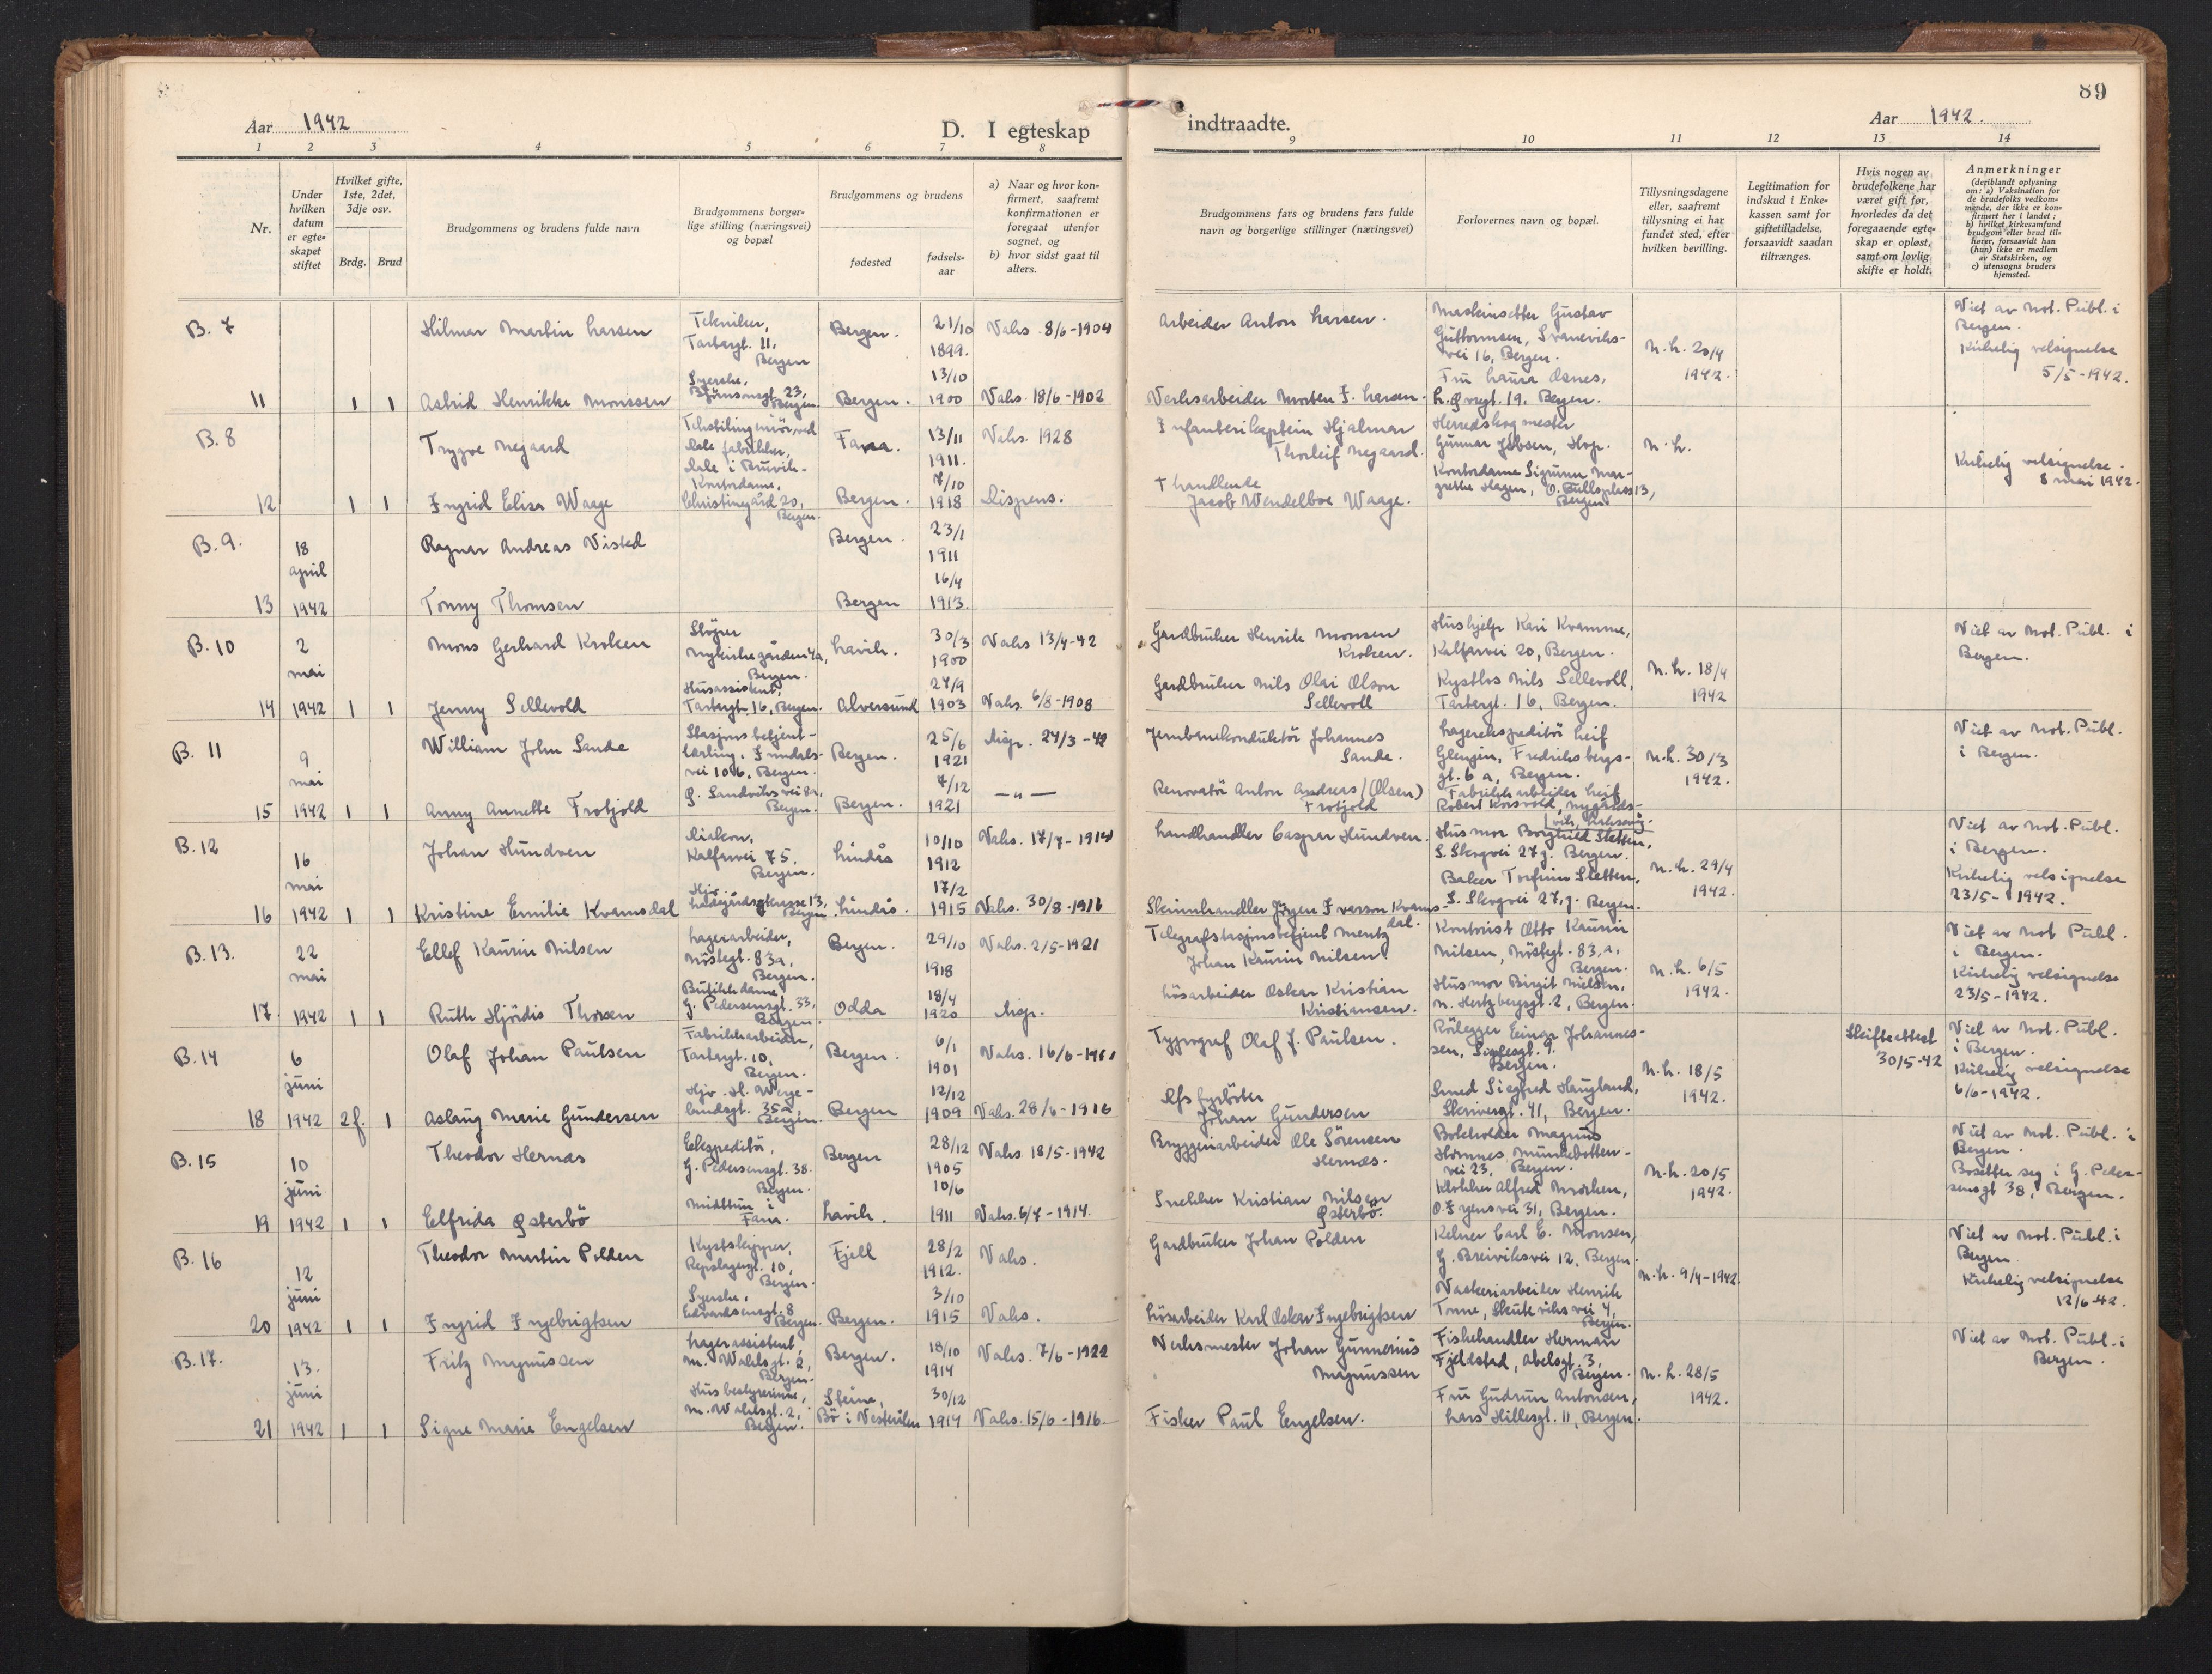 89
Aar 1942
D. I egteskap
indtraadte.
Aar 1942.
1 2 3 4 5 6 7 8 9 10 11 12 13 14
Nr.
Under
hvilken
datum
er egte-
skapet
stiftet
Hvilket gifte,
1ste, 2det,
3dje osv.
Brdg. Brud
Brudgommens og brudens fulde navn
Brudgommens borger-
lige stilling (næringsvei)
og bopæl
Brudgommens og brudens
fødested
fødsels-
aar
a) Naar og hvor kon-
firmert, saafremt
konfirmationen er
foregaat utenfor
sognet, og
b) hvor sidst gaat til
alters.
Brudgommens fars og brudens fars fulde
navn og borgerlige stillinger (næringsvei)
Forlovernes navn og bopæl.
Tillysningsdagene
eller, saafremt
tillysning ei har
fundet sted, efter
hvilken bevilling.
Legitimation for
indskud i Enke-
kassen samt for
giftetilladelse,
forsaavidt saadan
tiltrænges.
Hvis nogen av
brudefolkene har
været gift før,
hvorledes da det
foregaaende egte-
skap er opløst,
samt om lovlig
skifte er holdt.
Anmerkninger
(deriblandt oplysning
om: a) Vaksination for
de brudefolks vedkom-
mende, der ikke er kon-
firmert her i landet;
b) hvilket kirkesamfund
brudgom eller brud til-
hører, forsaavidt han
(hun) ikke er medlem
av Statskirken, og
c) utensogns bruders
hjemsted.
B. 7
Hilmar Martin Larsen
Tekniker,
Tartargt. 11,
Bergen
Bergen.
21/10
1899.
Vaks. 8/6-1904
Arbeider Anton Larsen.
Maskinsetter Gustav
Guttormsen, Svaneviks-
vei 16, Bergen.
N.L. 20/4
1942.
Viet av Not. Publ. i
Bergen.
Kirkelig velsignelse
5/5-1942.
11 1 1
Astrid Henrikke Monssen
Syerske,
Bjørnsonsgt. 23,
Bergen.
Bergen.
13/10
1900
Vaks. 18/6-1902
Verksarbeider Morten J. Larsen.
Fru Laura Osnes,
L. Øvregt. 19, Bergen.
B. 8
Trygve Negaard
Tekstilingeniør ved
Dale fabrikker,
Dale i Bruvik.
Fana.
13/11
1911.
Vaks. 1928
Infanterikaptein Hjalmar
Thorleif Negaard.
Herredskogmester
Gunnar Jebsen, Hop.
N.L.
Kirkelig velsignelse.
8 mai 1942.
12 1 1
Ingrid Elisa Waage
Kontordame,
Christinegård 20,
Bergen.
Bergen.
7/10
1918
Dispens.
† Handlende
Jacob Wendelboe Waage.
Kontordame Sigrunn Mar-
grethe Hagen, O. Bullsplass 13,
Bergen.
B. 9.
18
april
1942
Ragnar Andreas Visted
Bergen.
23/1
1911
13
Tonny Thomsen
Bergen
16/4
1913.
B. 10
2
mai
1942
Mons Gerhard Kroken
Sløyer
Nykirkegården 4a,
Bergen.
Lavik.
30/3
1900
Vaks 13/4-42
Gardbruker Henrik Monsen
Kroken.
Hushjelp Kari Kvamme,
Kalfarvei 20, Bergen.
N.L. 18/4
1942
Viet av Not. Publ. i
Bergen.
14 1 1
Jenny Sellevold
Husassistent,
Tartargt. 16, Bergen.
Alversund
24/9
1903
Vaks. 6/8-1908
Gardbruker Nils Olai Olson
Sellevoll
Kystlos Nils Sellevoll,
Tartargt. 16, Bergen.
B. 11
9
mai
1942
William John Sande
Stasjonsbetjent-
lærling, Inndals-
vei 106, Bergen.
Bergen.
25/6
1921
Disp. 24/3-42
Jernbanekonduktør Johannes
Sande.
Lagerekspeditør Leif
Glengin, Fredriksbergs-
gt. 6 a, Bergen.
N.L. 30/3
1942.
Viet av Not. Publ.
i Bergen.
15 1 1
Anny Annette Frotjold
Ø. Sandviksvei 8a,
Bergen.
Bergen.
7/12
1921
— " —
Renovatør Anton Andreas (Olsen)
Frotjold
Fabrikkarbeider Leif
Robert Korsvold, Nygårds-
B. 12
16
mai
1942
Johan Hundven
Diakon,
Kalfarvei 75,
Bergen.
Lindås
10/10
1912
Vaks. 17/7-1914
Landhandler Caspar Hundven.
Husmor Borghild Sletten,
S. Skogvei 27 j. Bergen.
N.L. 29/4
1942.
Viet av Not. Publ.
i Bergen.
Kirkelig velsignelse
23/5-1942.
16 1 1
Kristine Emilie Kvamsdal
Hjv.
Ladegårdsterrasse 13,
Bergen.
Lindås.
17/2
1915
Vaks. 30/8-1916
Skinnhandler Jørgen Ivarson Kvams-
dal.
Baker Torfinn Sletten,
S. Skogvei 27, j. Bergen.
B. 13.
22
mai
1942
Ellef Kaurin Nilsen
Lagerarbeider,
Nøstegt. 83a,
Bergen.
Bergen.
29/10
1918
Vaks. 2/5-1921
Telegrafstasjonsbetjent Mentz
Johan Kaurin Nilsen
Kontorist Otto Kaurin
Nilsen, Nøstegt. 83, a,
Bergen.
N.L. 6/5
1942.
Viet av Not Publ.
i Bergen.
Kirkelig velsignelse
23/5-1942.
17 1 1
Ruth Hjördis Thorsen
Butikkdame
G. Pedersensgt. 33,
Bergen.
Odda
18/4
1920
Disp.
Løsarbeider Oskar Kristian
Kristiansen.
Husmor Birgit Nielsen,
N. Hertzbergsgt. 2, Bergen.
B. 14
6
juni
1942
Olaf Johan Paulsen
Fabrikkarbeider,
Tartargt. 10,
Bergen.
Bergen.
6/1
1901
Typograf Olaf J. Paulsen.
Rørlegger Einar Johannes-
sen,
Bergen.
N.L. 18/5
1942.
Skifteattest
30/5-42
Viet av Not. Publ.
i Bergen.
Kirkelig velsignelse
6/6-1942.
18 2 f. 1
Aslaug Marie Gundersen
Hjv. H. Werge-
landsgt. 35a,
Bergen.
Bergen
12/12
1909
Vaks. 28/6-1916
Johan Gundersen
Smed Siegfred Haugland,
Skrivergt. 41, Bergen.
B. 15
10
juni
1942
Theodor Hernæs
Ekspeditør,
G. Pedersensgt. 38.
Bergen.
Bergen
28/12
1905
Vaks 18/5-1942
Bryggeriarbeider Ole Sörensen
Hernæs.
Bokholder Magnus
Hornnes, Munkebotten-
vei 23, Bergen.
N.L. 20/5
1942.
Viet av Not. Publ. i
Bergen.
Bosetter seg i G. Peder-
sensgt 38, Bergen.
19 1 1
Elfrida Østerbö
Midttun i
Fana.
Lavik.
10/6
1911
Vaks. 6/7-1914.
Snekker Kristian Nilsen
Østerbö.
Klokker Alfred Morken,
O. Irgensvei 31, Bergen.
B. 16
12
juni
1942
Theodor Martin Polden
Kystskipper,
Repslagergt. 10,
Bergen.
Fjell
28/2
1912.
Vaks.
Gardbruker Johan Polden
Kelner Carl E. Monsen,
G. Breiviksvei 12, Bergen.
N.L. 9/4-1942.
Viet av Not. Publ. i
Bergen.
Kirkelig velsignelse
12/6-42.
20 1 1
Ingrid Ingebrigtsen
Syerske,
Edvardsensgt. 8
Bergen.
Bergen.
3/10
1915
Vaks.
Løsarbeider Karl Oskar Ingebrigtsen
Vaskeriarbeider Henrik
Tonne, Skuteviksvei 4,
Bergen.
B. 17.
13.
juni
1942
Fritz Magnussen
Lagerassistent,
M. Wahlsgt. 2,
Bergen.
Bergen.
18/10
1914
Vaks. 7/6-1922
Verksmester Johan Gunnerius
Magnussen
Fiskehandler Herman
Fjeldstad, Abelsgt. 3,
Bergen.
N.L. 28/5
1942.
Viet av Not. Publ. i
Bergen.
21 1 1
Signe Marie Engelsen
Husbestyrerinne,
M. Wahlsgt. 2,
Bergen.
Steine,
Bö i Vesterålen
30/12
1914
Vaks. 15/6-1916.
Fisker Paul Engelsen.
Fru Gudrun Antonsen,
Lars Hillesgt. 11, Bergen.